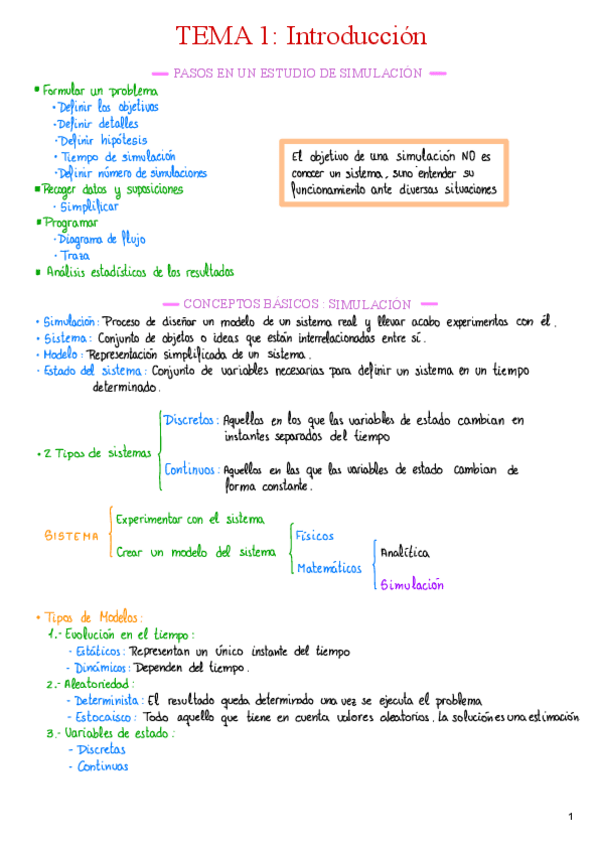 TEMA 1: Introducción
PASOS EN UN ESTUDIO DE SIMULACIÓN
Formular un problema
· Definir los objetivos
· Definir detalles
· Definir hipótesis
· Tiempo de simulación
· Definir número de simulaciones
Recoger datos y suposiciones
· Simplificar
Programar
· Diagrama de flujo
· Traza
Análisis estadísticos de los resultados
El objetivo de una simulación NO es
conocer un sistema, suno entender su
funcionamiento ante diversas situaciones
CONCEPTOS BÁSICOS : SIMULACIÓN
· Simulación: Proceso de diseñar un modelo de un sistema real y llevar acabo experimentos con él.
· Sistema: Conjunto de objetos o ideas que están interrelacionadas entre sí.
· Modelo: Representación simplificada de un sistema.
· Estado del sistema: Conjunto de variables necesarias para definir un sistema en un tiempo
determinado.
· 2 Tipos de sistemas
Discretos: Aquellos en los que las variables de estado cambian en
instantes separados del tiempo
Continuos: Aquellos en las que las variables de estado cambian de
forma constante.
SISTEMA
Experimentar con el sistema
Crear un modelo del sistema
Físicos
Matemáticos
Analítica
Simulación
· Tipos de Modelos:
1.- Evolución en el tiempo:
- Estáticos: Representan un único instante del tiempo
- Dinámicos: Dependen del tiempo.
2.- Aleatoriedad:
- Determinista: El resultado queda determinado una vez se ejecuta el problema
- Estocaisco: Todo aquello que tiene en cuenta valores aleatorios, la solución es una estimación
3.- Variables de estado:
- Discretas
- Continuas
1